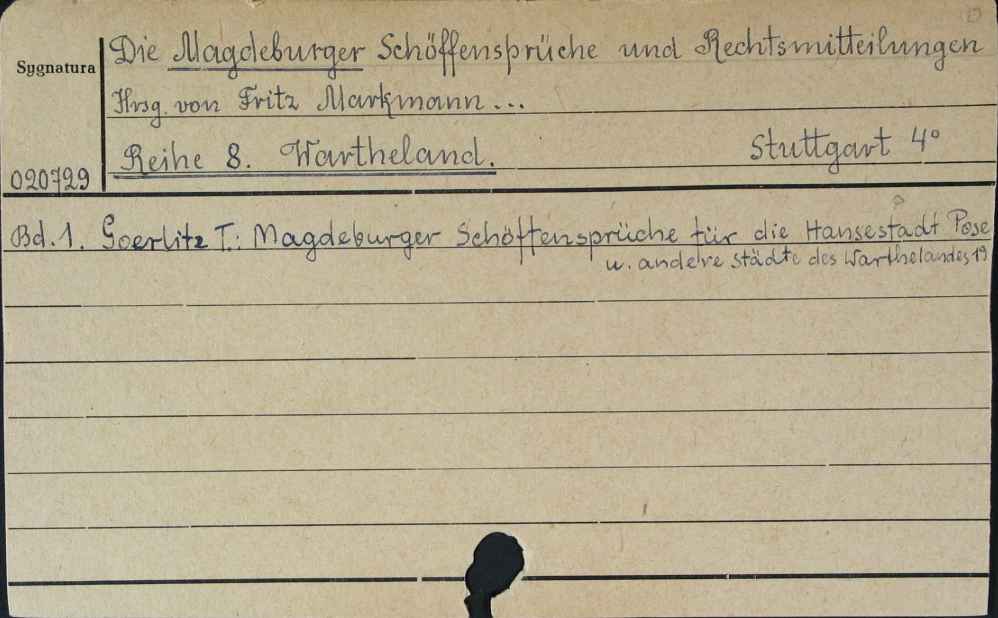 Die Magdeburger Schöffensprüche und Rechtsmitteilungen
Sygnatura
Hrsg. von Fritz Markmann ...
Reihe 8. Wartheland. Stuttgart 4°
020729
Bd. 1. Goerlitz T.: Magdeburger Schöffensprüche für die Hansestadt Pose
u. andere Städte des Warthelandes 19